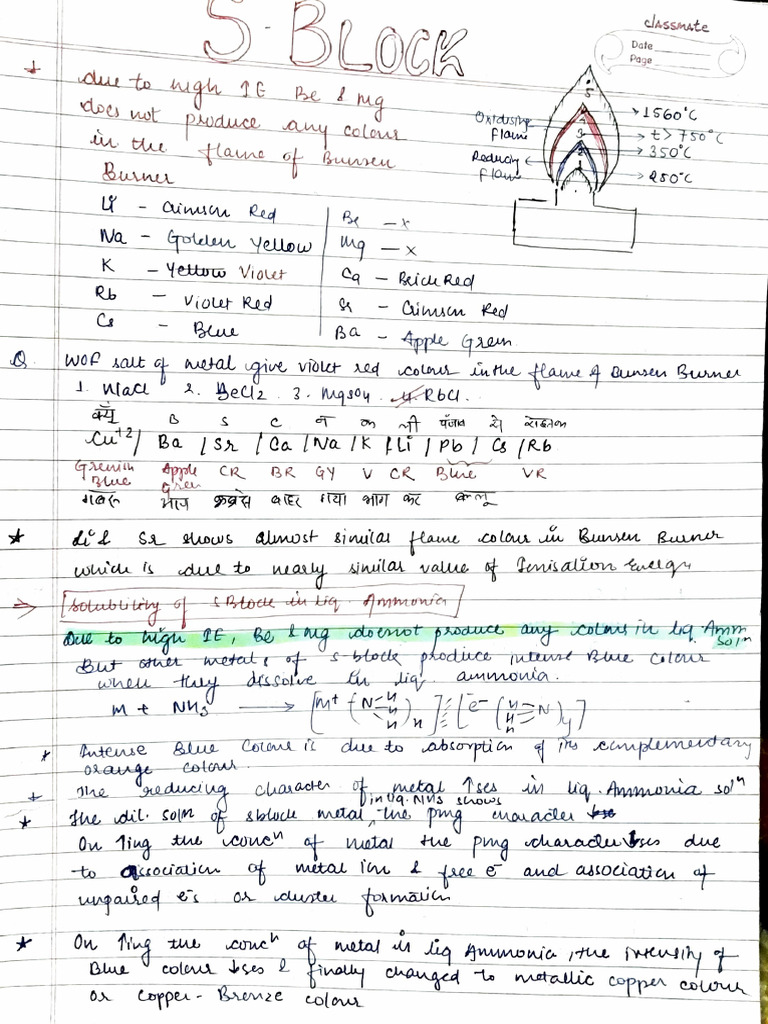 S-BLOCK
classmate
Date
Page
due to high IE Be & Mg
does not produce any colour
in the flame of Bunsen
Burner
Oxidising flame
Reducing flame
5
4
3
2
1
1560°C
t > 750°C
350°C
250°C
Li - Crimson Red
Na - Golden Yellow
K - Yellow Violet
Rb - Violet Red
Cs - Blue
Be - x
Mg - x
Ca - Brick Red
Sr - Crimson Red
Ba - Apple Green
Q. WOF salt of metal give violet red colour in the flame of Bunsen Burner
1. NaCl 2. BeCl2 3. MgSO4 4. RbCl.
क्यूँ B S C न क ली पंजाब से रोहतक
Cu+2 / Ba / Sr / Ca / Na / K / Li / Pb / Cs / Rb
Greenish Blue Apple Green CR BR GY V CR Blue VR
भाग बाहर गया भाग कर
* Li & Sr shows almost similar flame colour in Bunsen Burner
which is due to nearly similar value of Ionisation Energy
⇒ Solubility of s Block in liq. Ammonia
Due to high IE, Be & Mg doesnot produce any colour in liq. Amm soln
But other metals of s-block produce intense Blue colour
when they dissolve in liq. ammonia.
M + NH3 → [M+ (N≡H H H)n] [e- (H H H≡N)y]
* Intense Blue Colour is due to absorption of its complementary
orange colour.
* The reducing character of metal ↑ses in liq. Ammonia soln
* The dil. soln of sblock metal in liq. NH3 shows the pmg character
On ↑ing the concn of metal the pmg character ↓ses due
to association of metal ion & free e- and association of
unpaired e-s or cluster formation
* On ↑ing the concn of metal in liq Ammonia, the intensity of
Blue colour ↓ses & finally changed to metallic copper colour
or copper-Bronze colour